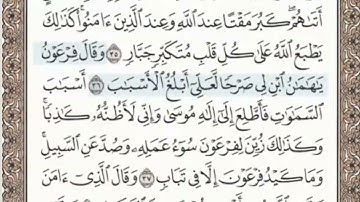 أَتَىٰهُمْ ۖ كَبُرَ مَقْتًا عِندَ ٱللَّهِ وَعِندَ ٱلَّذِينَ ءَامَنُوا۟ ۚ كَذَٰلِكَ
يَطْبَعُ ٱللَّهُ عَلَىٰ كُلِّ قَلْبِ مُتَكَبِّرٍ جَبَّارٍ ٣٥ وَقَالَ فِرْعَوْنُ
يَـٰهَـٰمَـٰنُ ٱبْنِ لِى صَرْحًا لَّعَلِّىٓ أَبْلُغُ ٱلْأَسْبَـٰبَ ٣٦ أَسْبَـٰبَ
ٱلسَّمَـٰوَٰتِ فَأَطَّلِعَ إِلَىٰٓ إِلَـٰهِ مُوسَىٰ وَإِنِّى لَأَظُنُّهُۥ كَـٰذِبًا ۚ
وَكَذَٰلِكَ زُيِّنَ لِفِرْعَوْنَ سُوٓءُ عَمَلِهِۦ وَصُدَّ عَنِ ٱلسَّبِيلِ ۚ
وَمَا كَيْدُ فِرْعَوْنَ إِلَّا فِى تَبَابٍ ٣٧ وَقَالَ ٱلَّذِىٓ ءَامَنَ